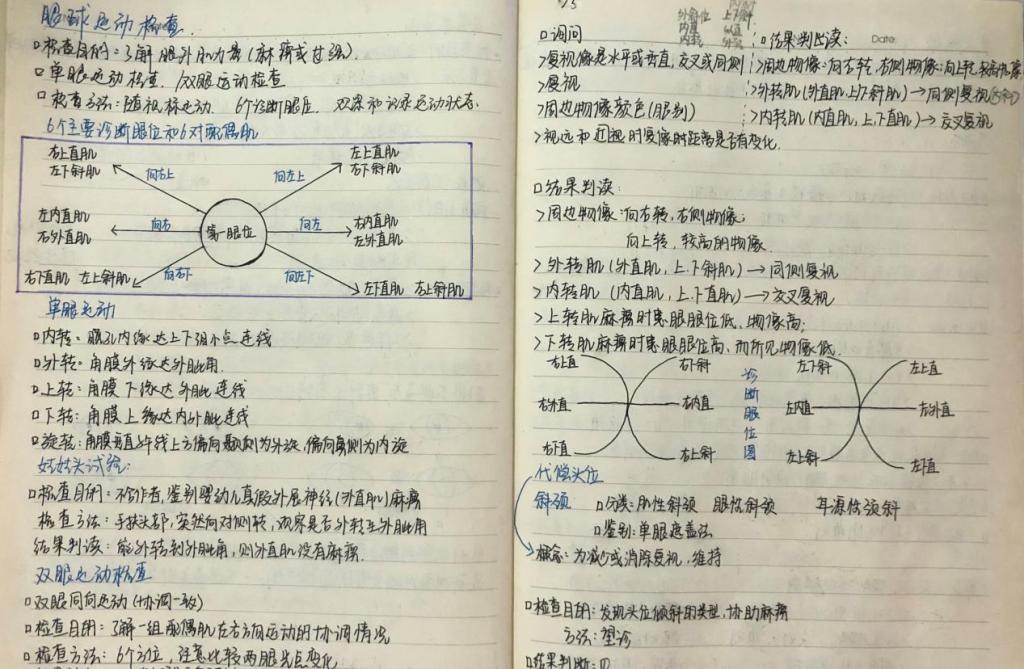 眼球运动检查
□检查目的：了解眼外肌力量(麻痹或过强).
□单眼运动检查 /双眼运动检查
□检查方法：随视标运动. 6个诊断眼位. 观察和记录运动状态.
6个主要诊断眼位和6对配偶肌
右上直肌
左下斜肌
向右上
向左上
左上直肌
右下斜肌
左内直肌
右外直肌
向右
第一眼位
向左
右内直肌
左外直肌
右下直肌 左上斜肌
向右下
向左下
左下直肌 右上斜肌
单眼运动
□内转：瞳孔内缘达上下泪小点连线
□外转：角膜外缘达外眦角.
□上转：角膜下缘达外眦连线
□下转：角膜上缘达内外眦连线
□旋转：角膜垂直子午线上方偏向颞侧则为外旋，偏向鼻侧为内旋
娃娃头试验：
□检查目的：不合作者，鉴别婴幼儿真假外展神经(外直肌)麻痹
检查方法：手扶头部，突然向对侧转，观察是否外转至外眦角
结果判读：能外转到外眦角，则外直肌没有麻痹.
双眼运动检查
□双眼同向运动(协调一致)
□检查目的：了解一组配偶肌在各方向运动的协调情况
□检查方法：6个方位，注意比较两眼光点变化
外斜位 上下斜
内直
内转
□询问
>复视像是水平或垂直，交叉或同侧
>复视
>周边物像颜色(眼别)
>视远和近视时复像时距离是否有变化.
□结果判读：
Date:
>周边物像：向右转，右侧物像；向上转，较高物像
>外转肌(外直肌，上.下斜肌)→同侧复视
>内转肌(内直肌，上.下直肌)→交叉复视
□结果判读：
>周边物像：向右转，右侧物像；
向上转，较高的物像.
>外转肌(外直肌，上.下斜肌)→同侧复视
>内转肌(内直肌，上.下直肌)→交叉复视
>上转肌麻痹时患眼眼位低、物像高；
>下转肌麻痹时患眼眼位高、而所见物像低.
右上直
右下斜
右外直
右内直
右下直
右上斜
诊断眼位图
左下斜
左上直
左内直
左外直
左上斜
左下直
代偿头位
斜颈 □分类：肌性斜颈 眼性斜颈 耳源性颈斜
□鉴别：单眼遮盖法
概念：为减少或消除复视，维持
□检查目的：发现头位倾斜的类型，协助麻痹
方法：望诊
□结果判断：